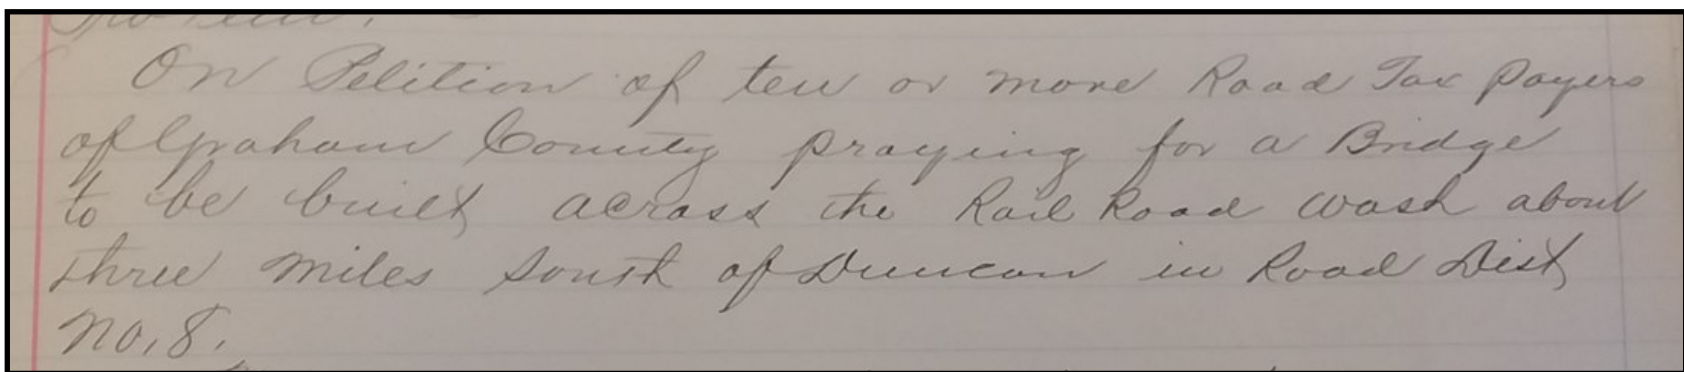 On Petition of ten or more Road Tax payers
of Graham County praying for a Bridge
to be built across the Rail Road wash about
three miles South of Duncan in Road Dist
No. 8.